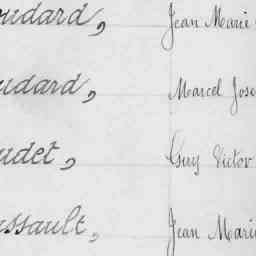 oudard, Jean Marie
oudard, Marcel Jose
udet, Guy Victor
ussault, Jean Marie